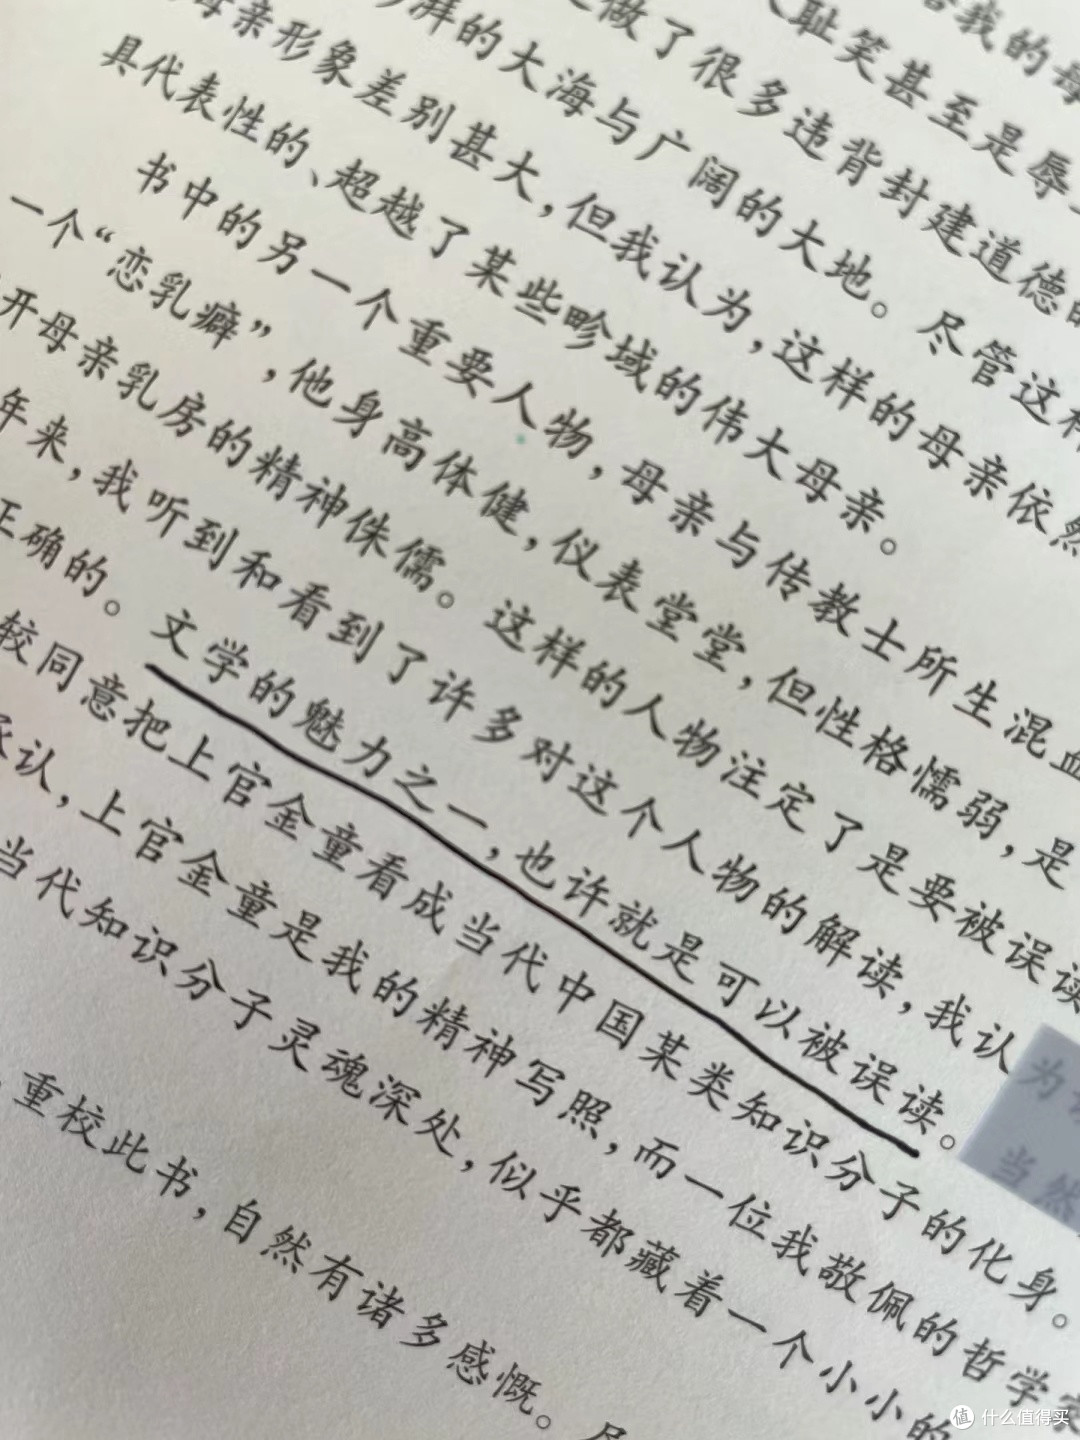 我的母
人耻笑甚至是辱
做了很多违背封建道德的
湃的大海与广阔的大地。尽管这样
母亲形象差别甚大，但我认为，这样的母亲依然
具代表性的、超越了某些畛域的伟大母亲。
书中的另一个重要人物，母亲与传教士所生混血
一个“恋乳癖”，他身高体健，仪表堂堂，但性格懦弱，是
开母亲乳房的精神侏儒。这样的人物注定了是要被误读
年来，我听到和看到了许多对这个人物的解读，我认为
正确的。文学的魅力之一，也许就是可以被误读。当然
较同意把上官金童看成当代中国某类知识分子的化身。
承认，上官金童是我的精神写照，而一位我敬佩的哲学家
当代知识分子灵魂深处，似乎都藏着一个小小的
重校此书，自然有诸多感慨。
值 什么值得买